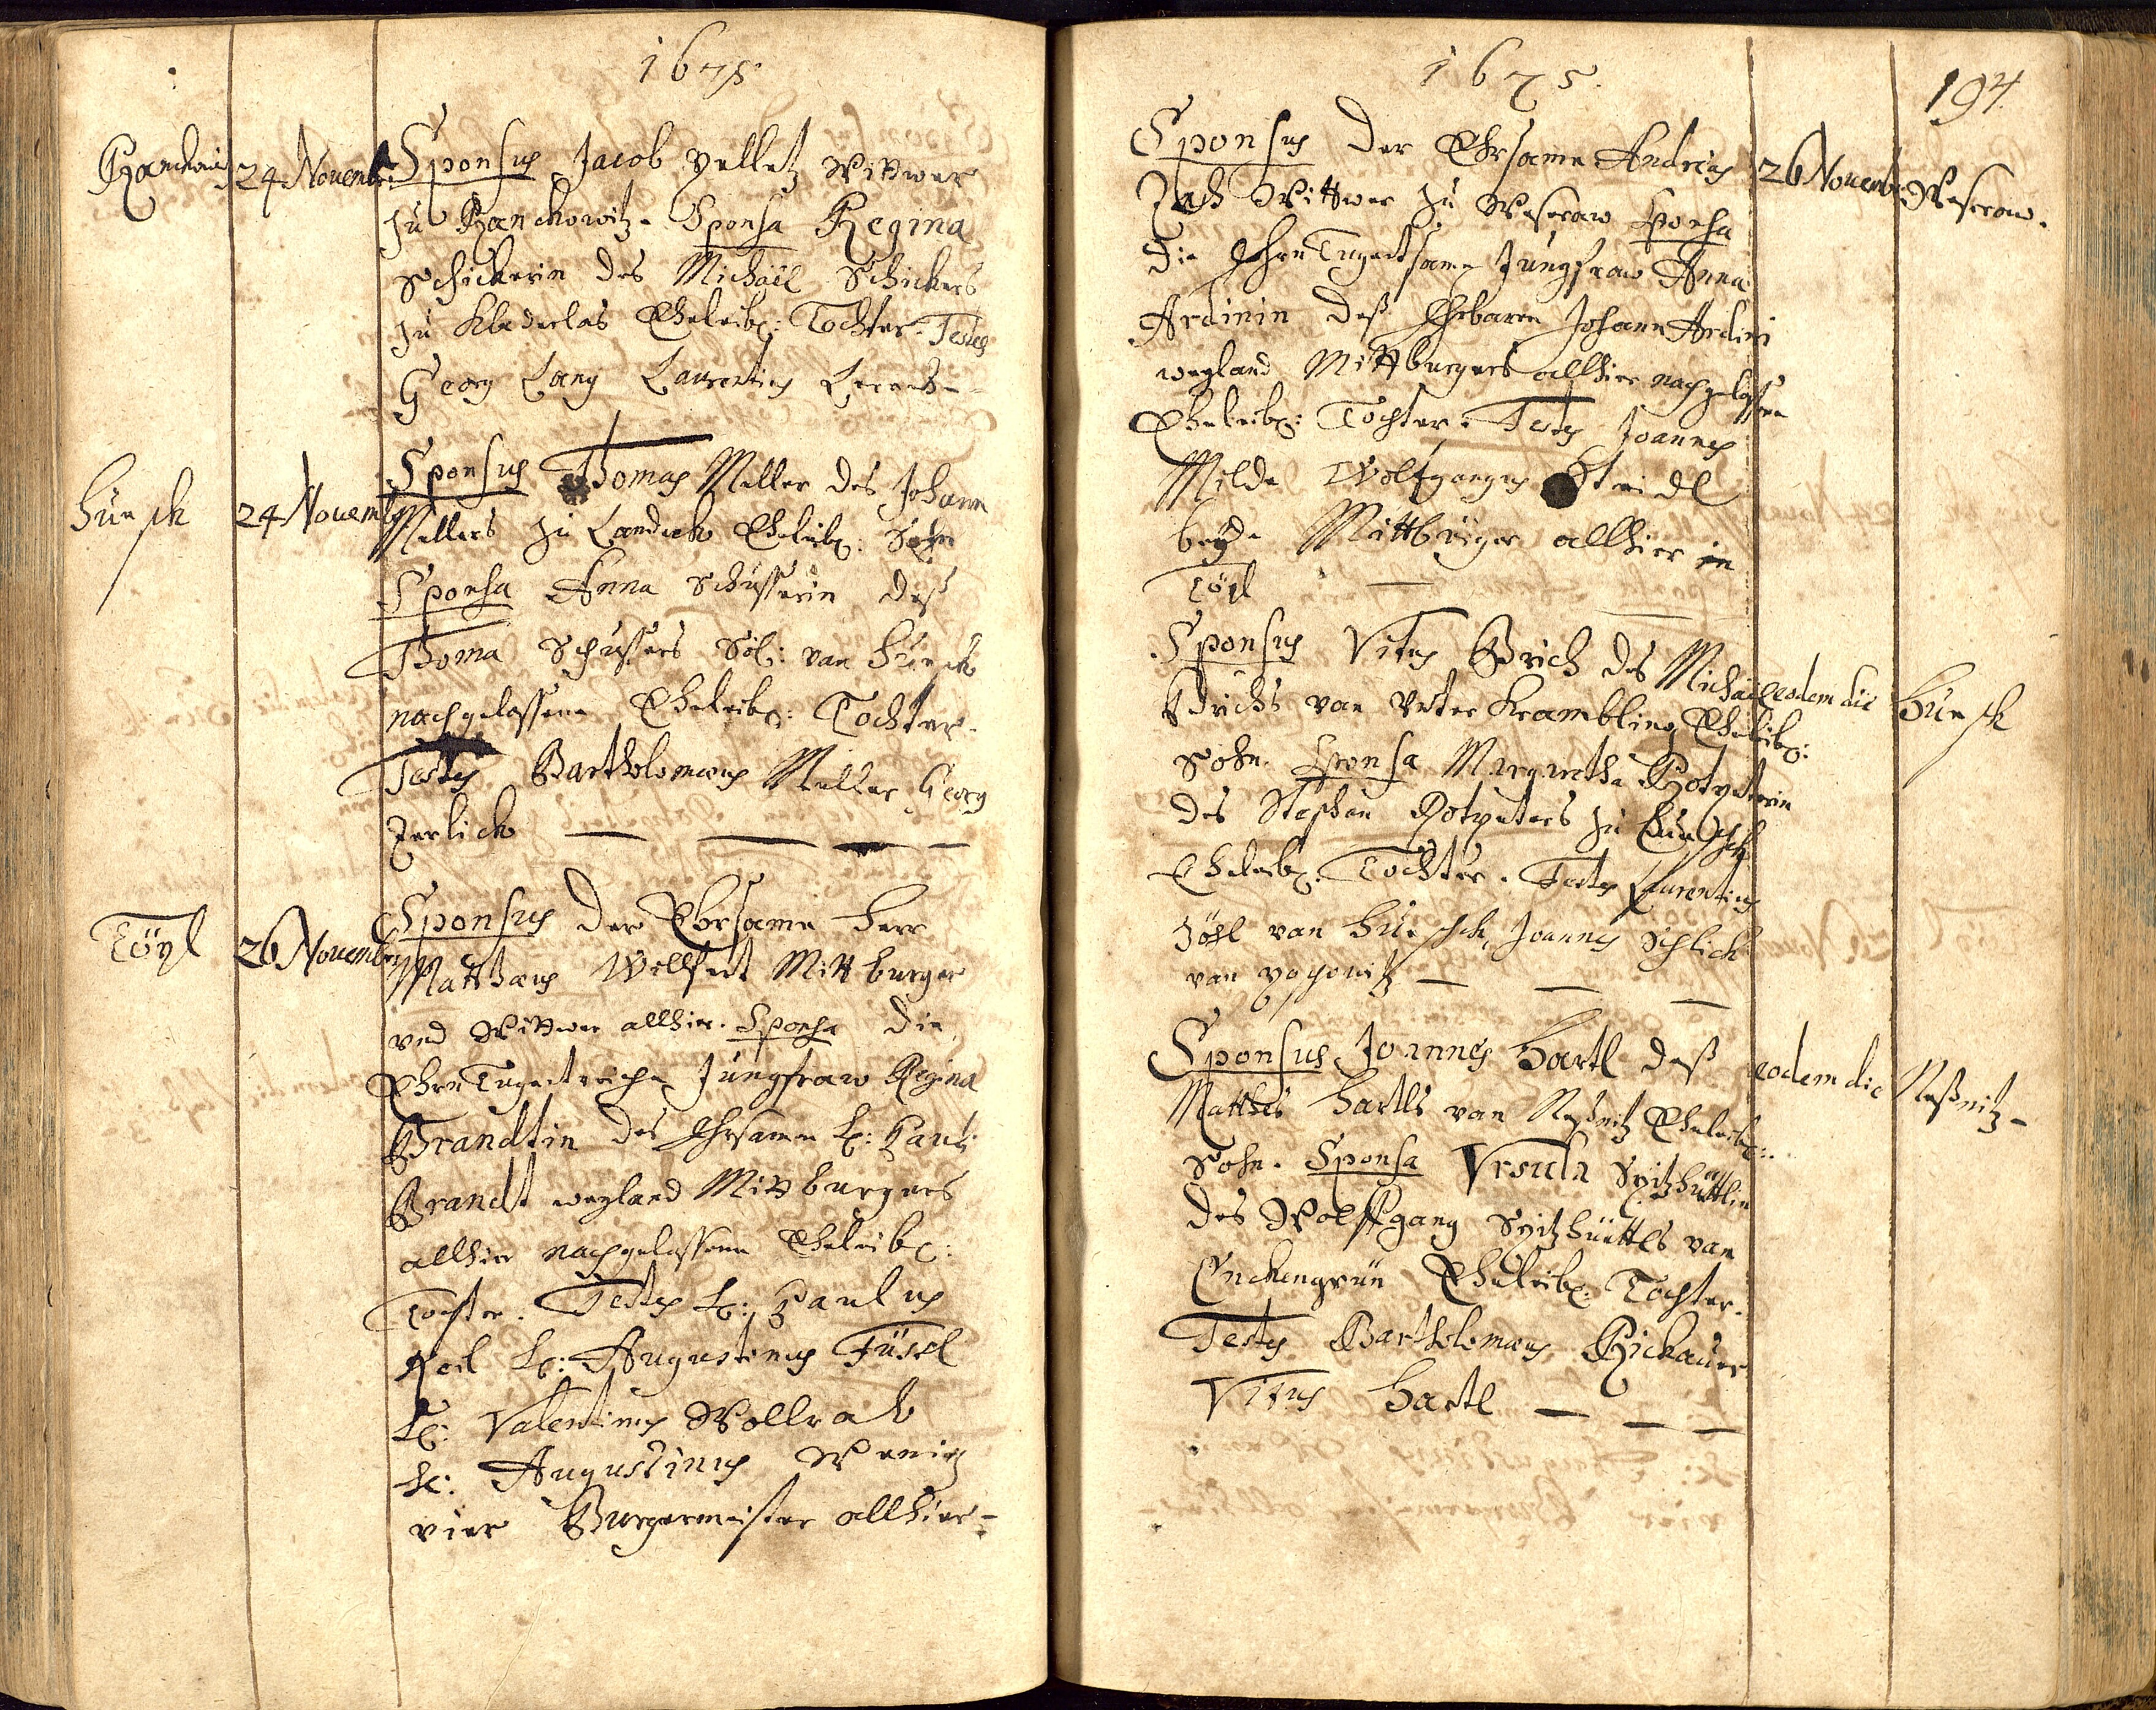 1675.
Ranckowitz 24 Novemb: Sponsus Jacob yelletz Wittwer
zu Ranckowitz. Sponsa Regina
Schickerin des Michäel Schickers
zu Kladerlas Eheleibl: Tochter. Testes
Georg Lang Laurentius
Hürsch 24 Novemb: Sponsus Thomas Miller des Johann
Millers zu Landeck Eheleibl: Sohn
Sponsa Anna Schusserin deß
Thoma Schussers Sel: von Hürsch
nachgelassene Eheleibl: Tochter.
Testes Bartholomæus Miller Georg
Zerlick
Töpl 26 November Sponsus der Ehrsame Herr
Matthæus Willfert Mittburger
vnd Wittwer allhier. Sponsa die
EhrenTugentreiche Jungfraw Regina
Brandtin des Ehrsamen H: Pauli
Brandt weyland Mittburgers
allhier nachgelassene Eheleibl:
Tochter. Testes H: Paulus
H: Augustinus Füssl
H: Valentinus Wollrab
H: Augustinus Wenig
vier Burgermeister allhier
1675.
194
Sponsus der Ehrsame Andreas 26 Novemb: Weserow.
Zach Wittwer zu Weseraw Sponsa
die EhrnTugentsame Jungfraw Anna
Ardinin deß Ehrbaren Johann Ardini
weyland Mittburgers allhier nachgelassene
Eheleibl: Tochter. Testes Joannes
Milde Wolfgangus Steidl
beyde Mittbürger allhier in
Töpl
Sponsus Vitus Bdrich des Michäel eodem die Hürsch
Bdrichs von Vnter Krambling Eheleibl:
Sohn. Sponsa Margaretha Rotpeterin
des Stephan Rotpeters zu Hürschh
Eheleibl. Tochter. Testes Laurentius
Zöhl von Hürschh, Joannes Schlick
von poschowitz
Sponsus Joannes Hartl deß eodem die Naßnitz
Matthes Hartls von Naßnitz Eheleibl:
Sohn. Sponsa Vrsula Spitzhüttlin
des Wolffgang Spitzhüttls von
Enckengrün Eheleibl: Tochter.
Testes Bartholomæus Rickauer
Vitus Hartl